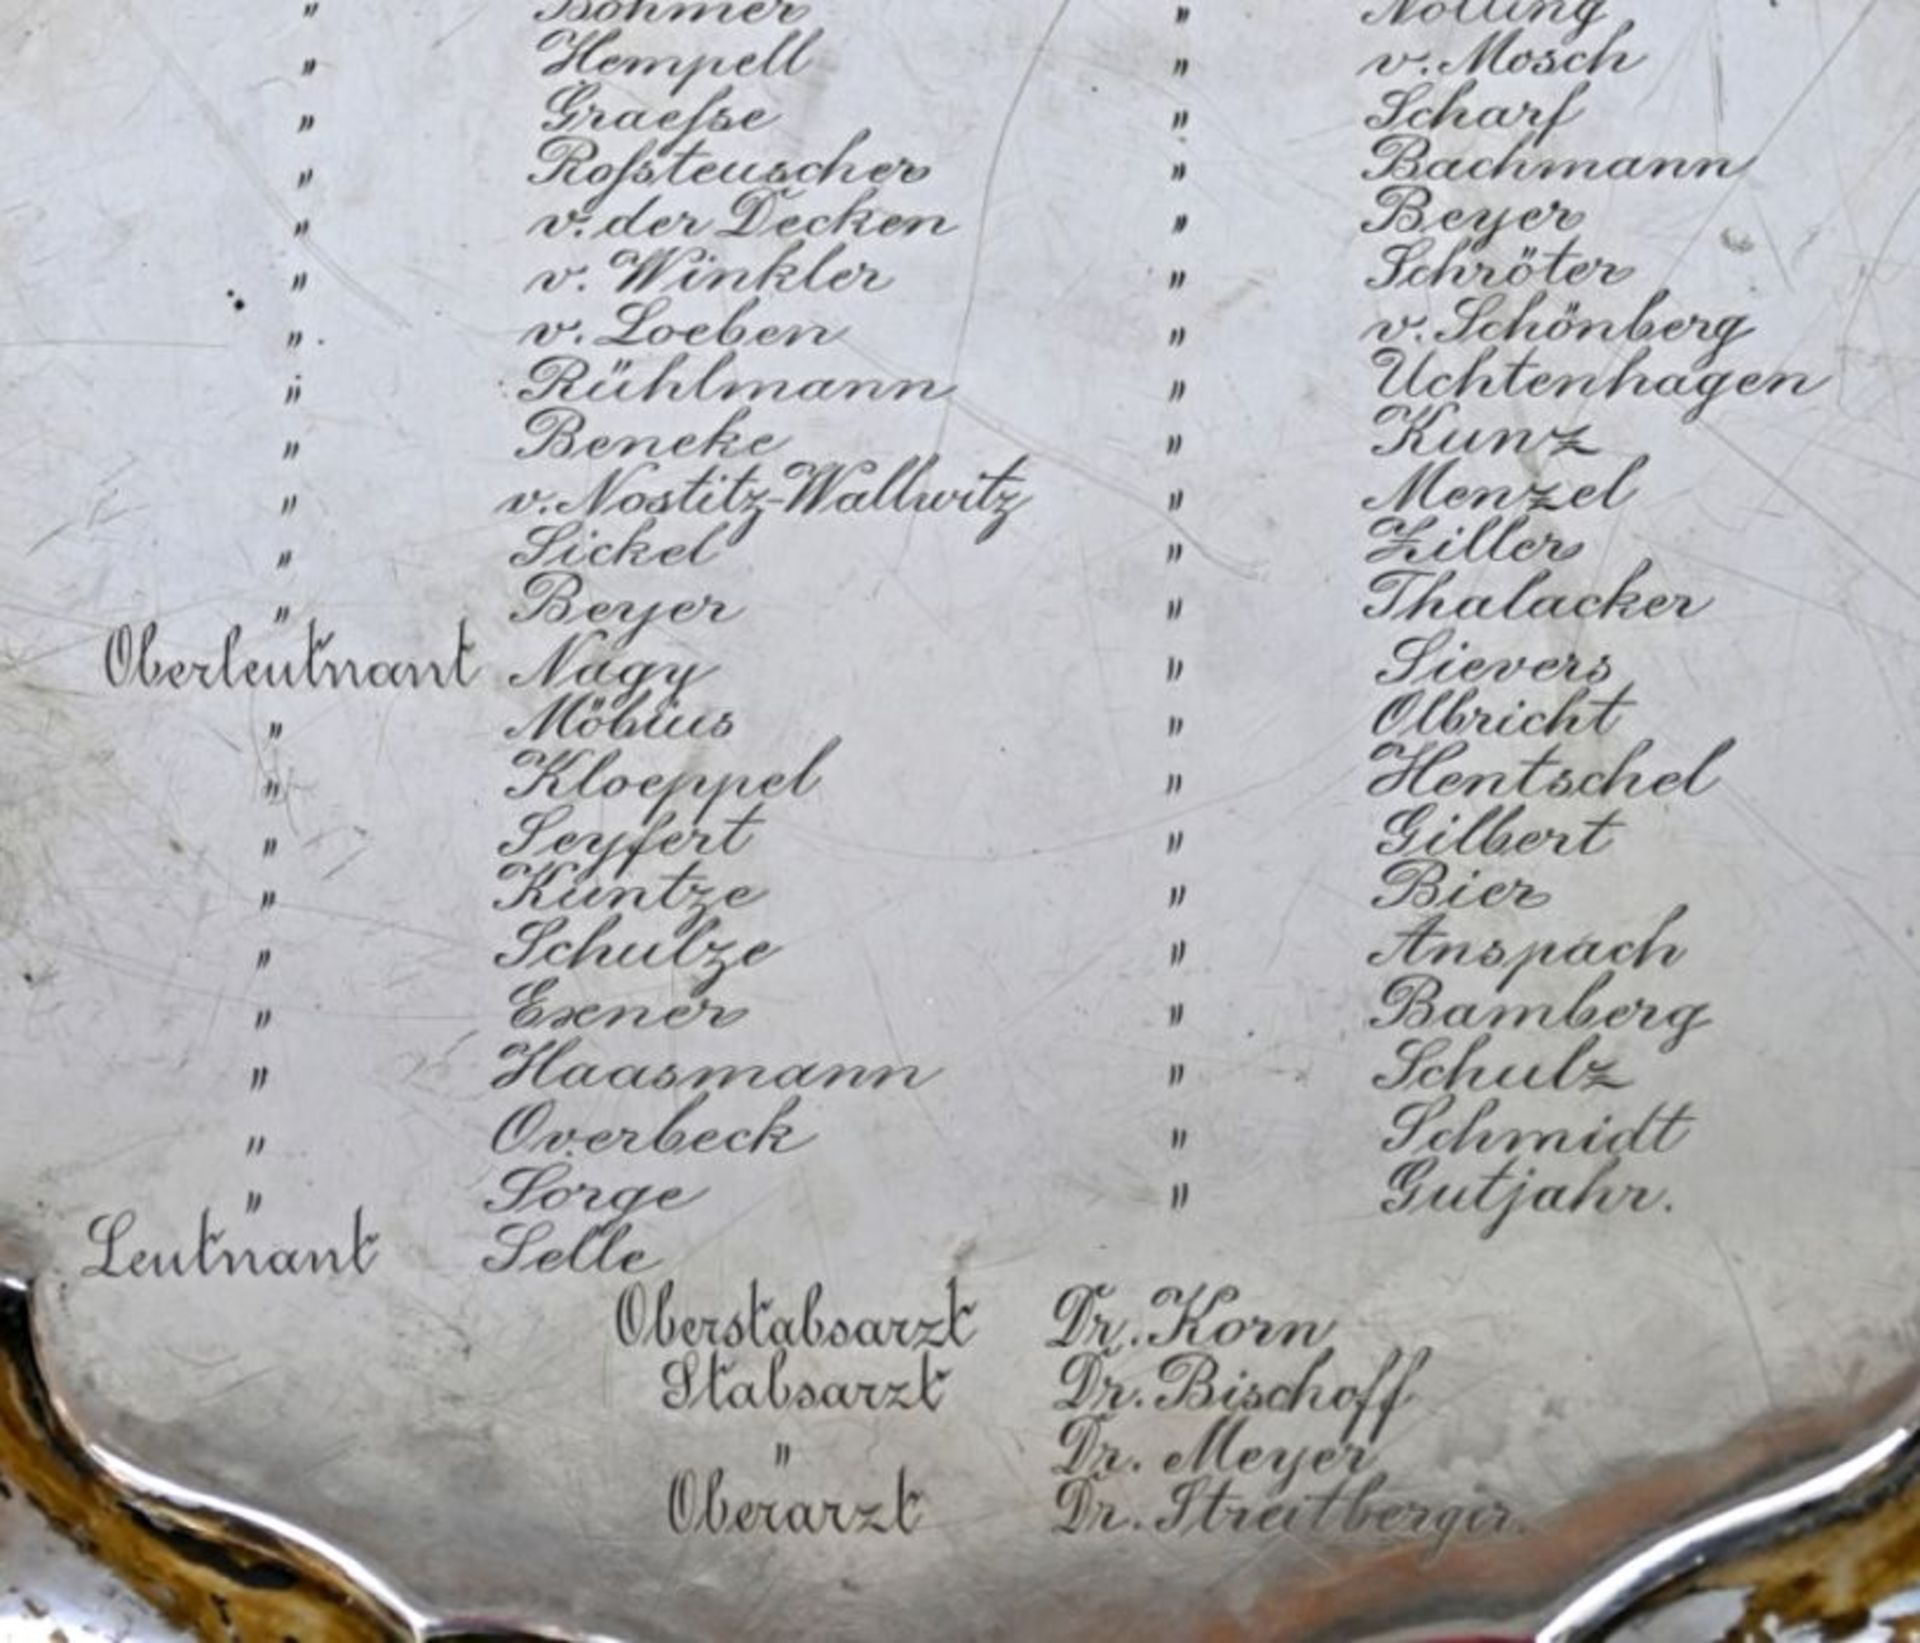 " Böhmer " Nolting
" Hempell " v. Mosch
" Graefse " Scharf
" Roſsteuscher " Bachmann
" v. der Decken " Beyer
" v. Winkler " Schröter
" v. Loeben " v. Schönberg
" Rühlmann " Uchtenhagen
" Beneke " Kunz
" v. Nostitz-Wallwitz " Menzel
" Sickel " Ziller
" Beyer " Thalacker
Oberleutnant Nagy " Sievers
" Möbius " Olbricht
" Kloeppel " Hentschel
" Seyfert " Gilbert
" Kuntze " Bier
" Schulze " Anspach
" Exner " Bamberg
" Haasmann " Schulz
" Overbeck " Schmidt
" Sorge " Gutjahr.
Leutnant Selle
Oberstabsarzt Dr. Korn
Stabsarzt Dr. Bischoff
" Dr. Meyer
Oberarzt Dr. Streitberger.